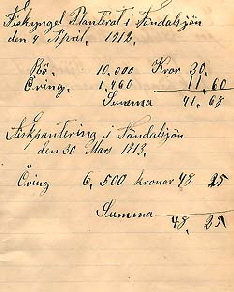 Fiskyngel Planterat i Tindalsjön
den 4 April. 1912.
Rö. 10,000 Kror 30.
Öring. 1,460 11,60
Summa 41,60
Fiskplantering i Tindalsjön
den 30 Mars 1913.
Öring 6,500 kronor 48 25
Summa 48,25